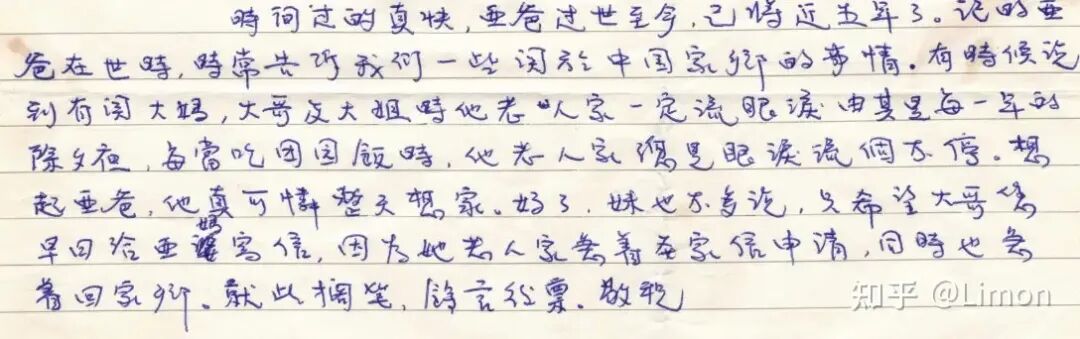 時间过的真快，亜爸过世至今，已将近五年了。记的亜
爸在世時，時常告诉我们一些関於中国家鄉的事情。有時候说
到有関大媽，大哥及大姐時他老人家一定流眼淚由其是每一年的
除夕夜，每當吃团园飯時，他老人家總是眼淚流個不停。想
起亜爸，他真可憐整天想家。好了，妹也不多说，只希望大哥儘
早回给亜媽寫信，因为她老人家急着等家信申请，同時也急
着回家鄉。就此擱笔，餘言後禀。敬祝
知乎 @Limon